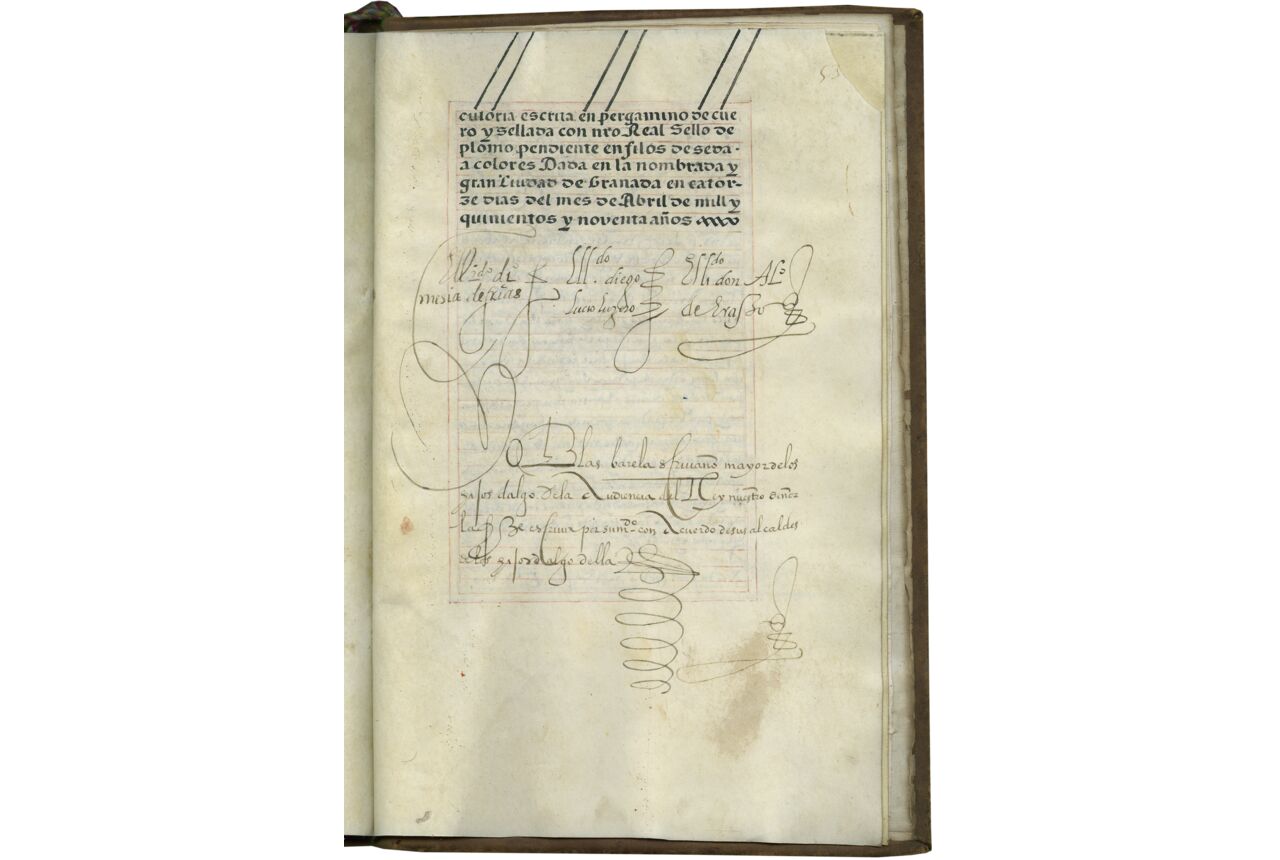 cutoria escrita en pergamino de cue
ro y sellada con nro Real Sello de
plomo pendiente en filos de seda
a colores Dada en la nombrada y
gran Ciudad de Granada en cator-
ze dias del mes de Abril de mill y
quinientos y noventa años
El lido di
misia de frias
El l.do diego
El l.do don Al.o
de Erasso
Yo Blas barela escriuano mayor delos
hijos dalgo dela Audiencia del Rey nuestro señor
la fize escriuir por su md.o con Acuerdo de sus alcaldes
delos hijos dalgo della